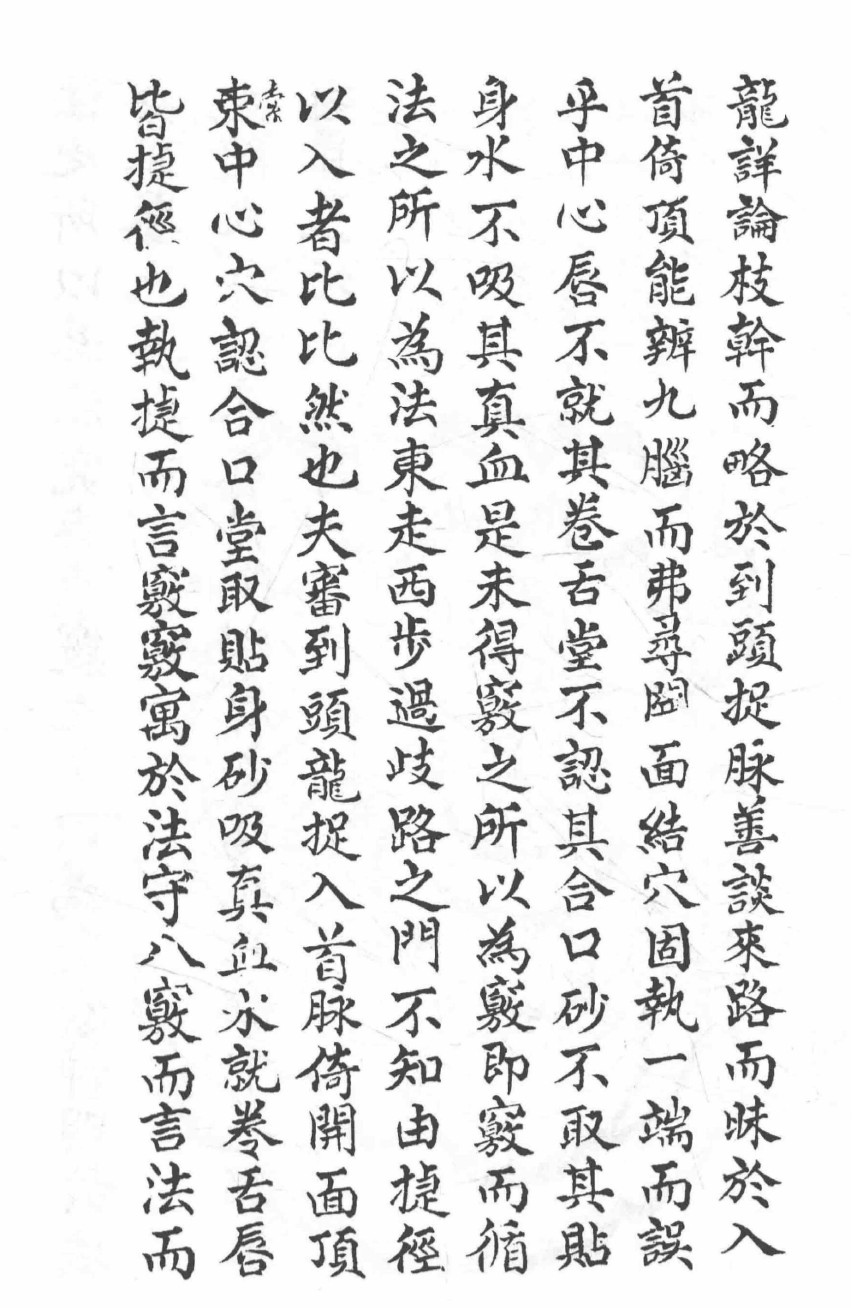 龍詳論枝幹而略於到頭捉脉善談來路而昧於入
首倚頂能辨九腦而弗尋開面結穴固執一端而誤
乎中心唇不就其卷舌堂不認其合口砂不取其貼
身水不吸其真血是未得竅之所以為竅即竅而循
法之所以為法東走西步過歧路之門不知由捷徑
以入者比比然也夫審到頭龍捉入首脉倚開面頂
束索中心穴認合口堂取貼身砂吸真血水就卷舌唇
皆捷徑也執捷而言竅竅寓於法守八竅而言法而